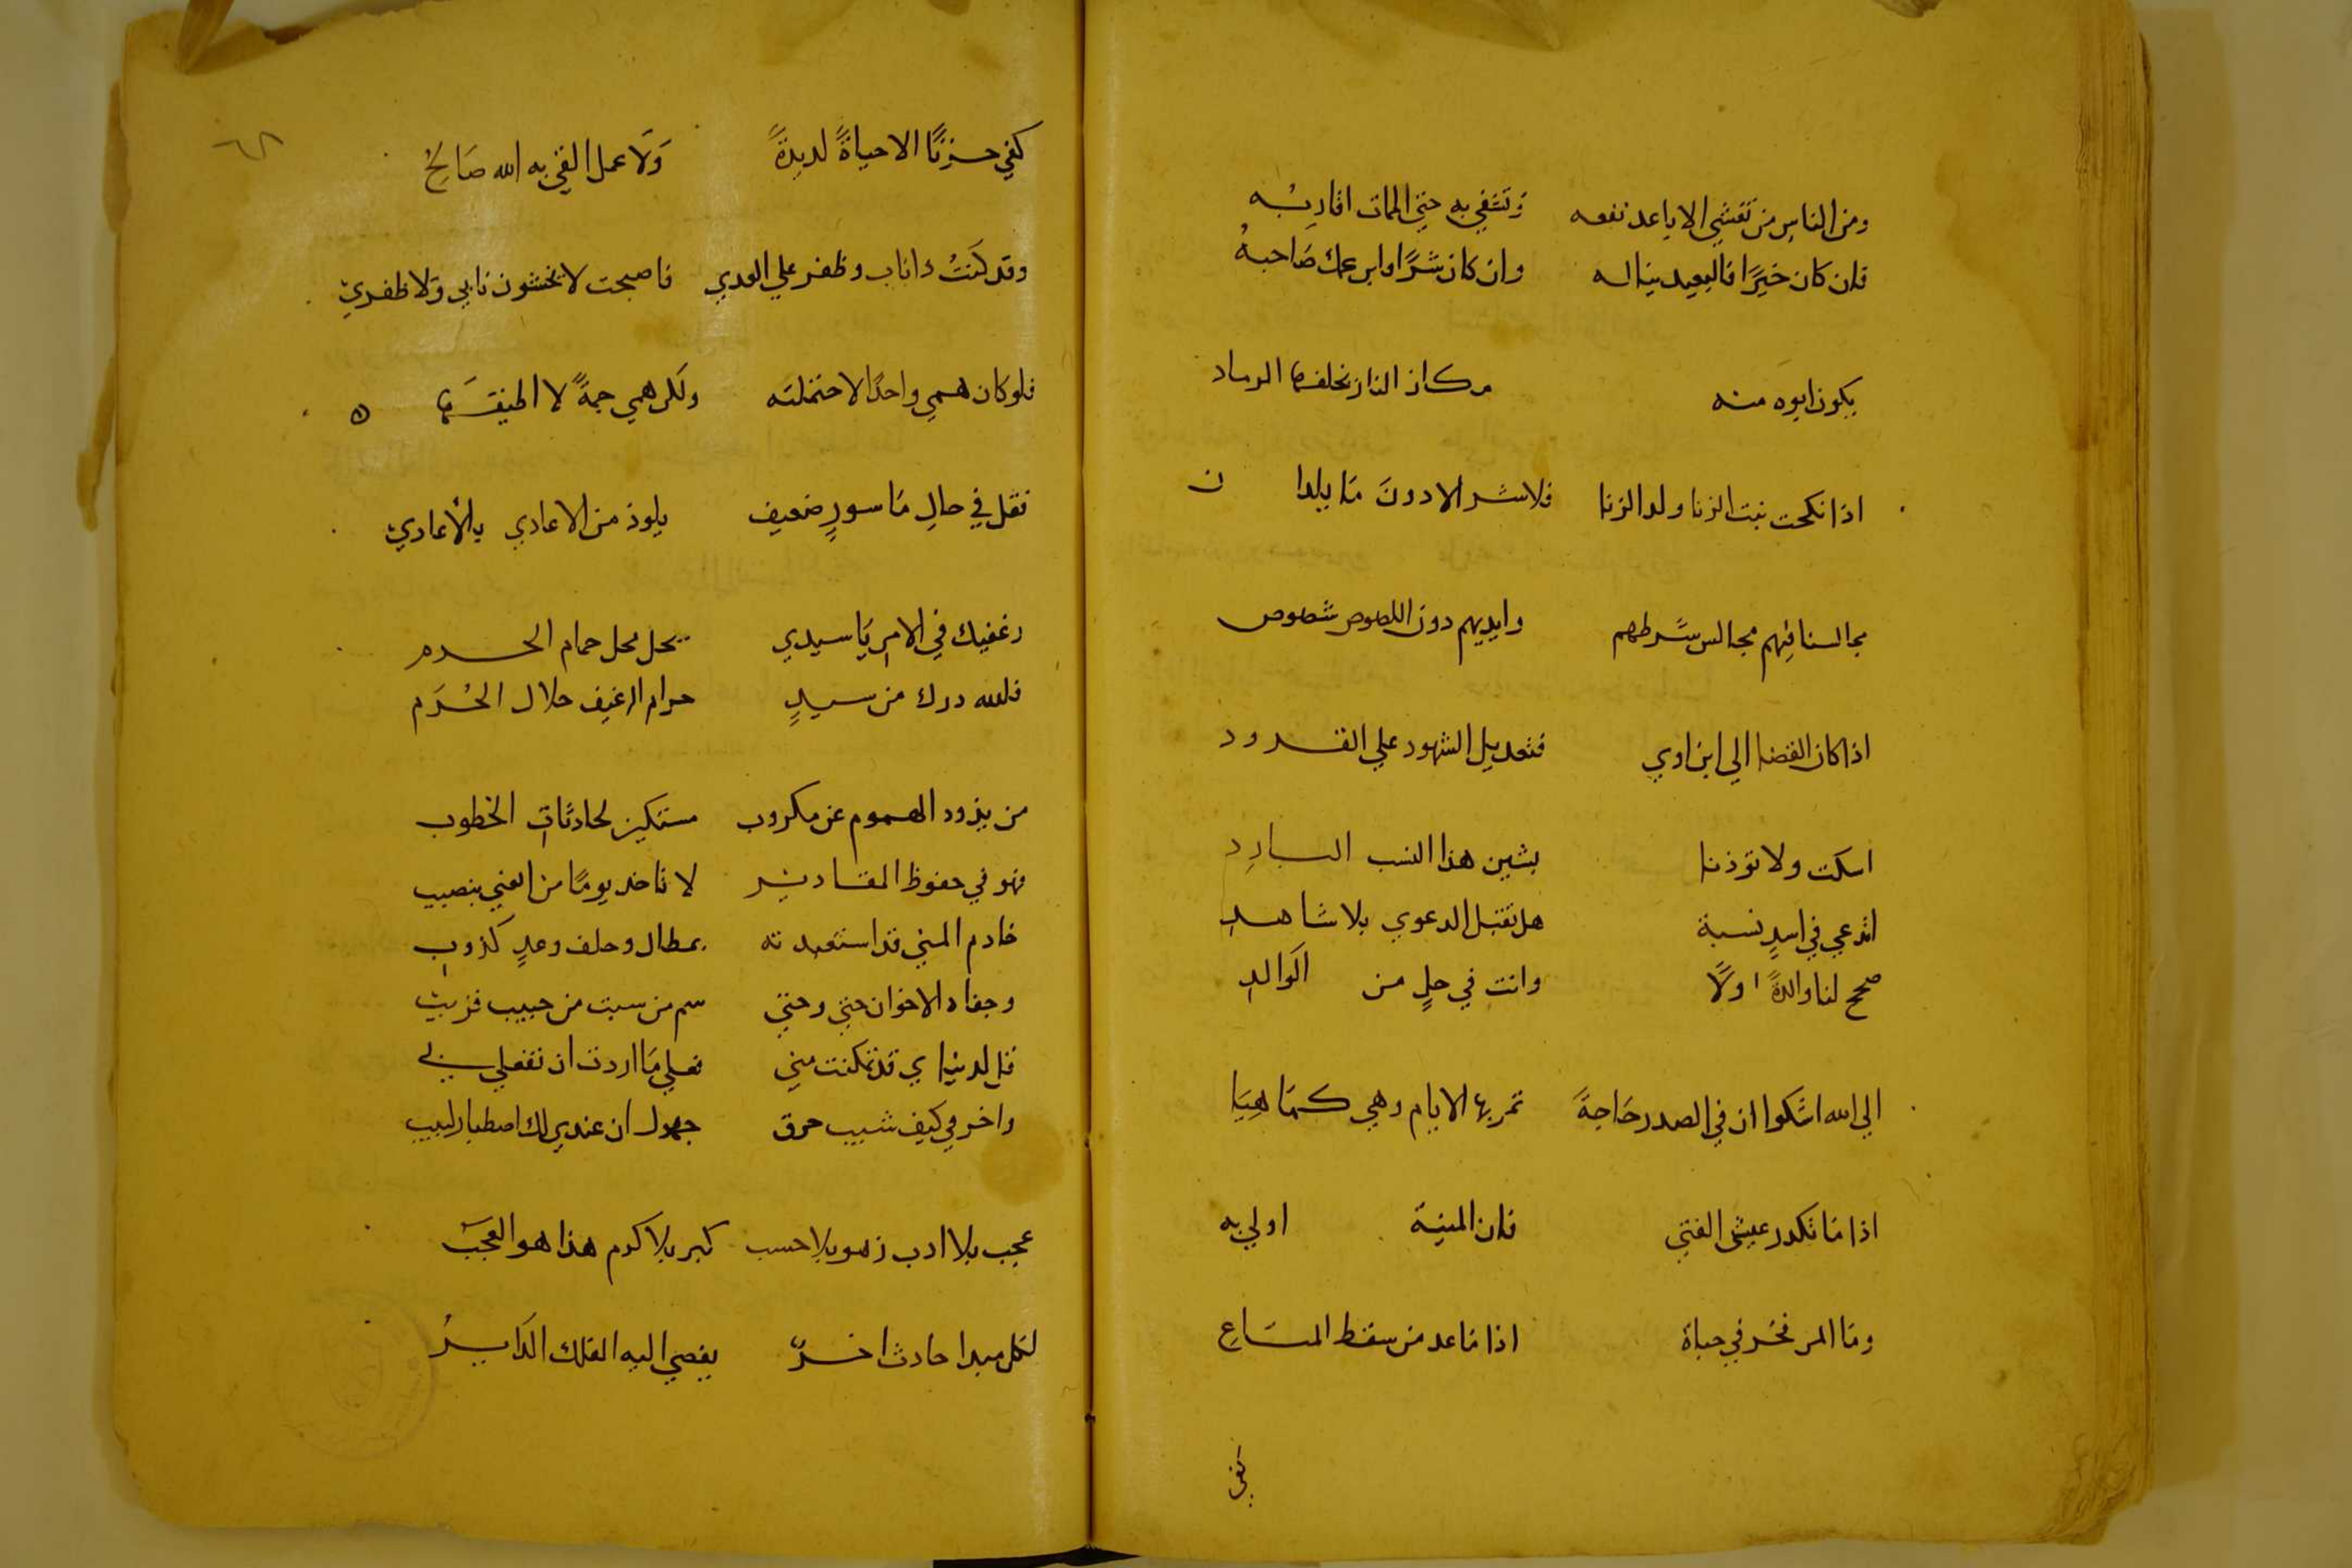 ومن الناس من تغشي الاباعد نفعه وتشقي به حتي الممات اقاربُه
فان كان خيرًا فالبعيد يناله وان كان شرًا وابن عمك صَاحبهُ
يكون ابوه منه مكان النار تخلفها الرماد
اذا نكحت بنت الزنا ولد الزنا فلا شر الا دونَ مَا يلدا ن
مجالسنا فيهم مجالس شرطهم وايديهم دون اللصوص شصوص
اذا كان القضا الي ابن اوي فتعديل الشهود علي القرود
اسكت ولا توذنا بشين هذا النسب البارد
اتدعي في اسدٍ نسبة هل تقبل الدعوي بلا شاهدِ
صحح لنا والدةً اولًا وانت في حلٍ من الوالدِ
الي الله اشكوا ان في الصدر حَاجةً تمر بها الايام وهي كمَا هِيَا
اذا مَا تكدر عيش الفتي فان المنية اولي به
ومَا المر فخر في حياة اذا مَا عد من سقط المتاعِ
كفي
كفي حزنًا الا حياةً لديدةً وَلا عمل القي به الله صَالحُ
وقد كنتُ داناب وظفر علي العدي فاصبحت لا يخشون نابي ولا ظفري
فلو كان همي واحدًا لاحتملته ولكن همي جمةً لا اطيقها ه
فقل في حالِ مَاسورٍ ضعيف يلوذ من الاعادي بالأعادي
رغفيك في الامن يَا سيدي يحل محل حمام الحرم
فلله درك من سيدٍ حرام الرغيف حلال الحُرَم
من يذود الهموم عن مكروب مستكين لحادثات الخطوب
فهو في حفوظ المقادير لا تاخد يومًا من الغني بنصيب
خادم المني قد استعبدته بمطال وحلف وعدٍ كذوب
وجفاه الاخوان حتي وحتي سم من سيت من حبيب قريب
قل لدنياي قد تمكنت مني فعلي مَا اردت ان تفعلي بي
واخرقي كيف شيت خرق جهول ان عندي لك اصطبار لبيب
عجب بلا ادب زهو بلا حسب كبر بلا كرم هذا هو العجَبُ
لكل مبدا حادث اخرٌ يفضي اليه الفلك الدَايرُ